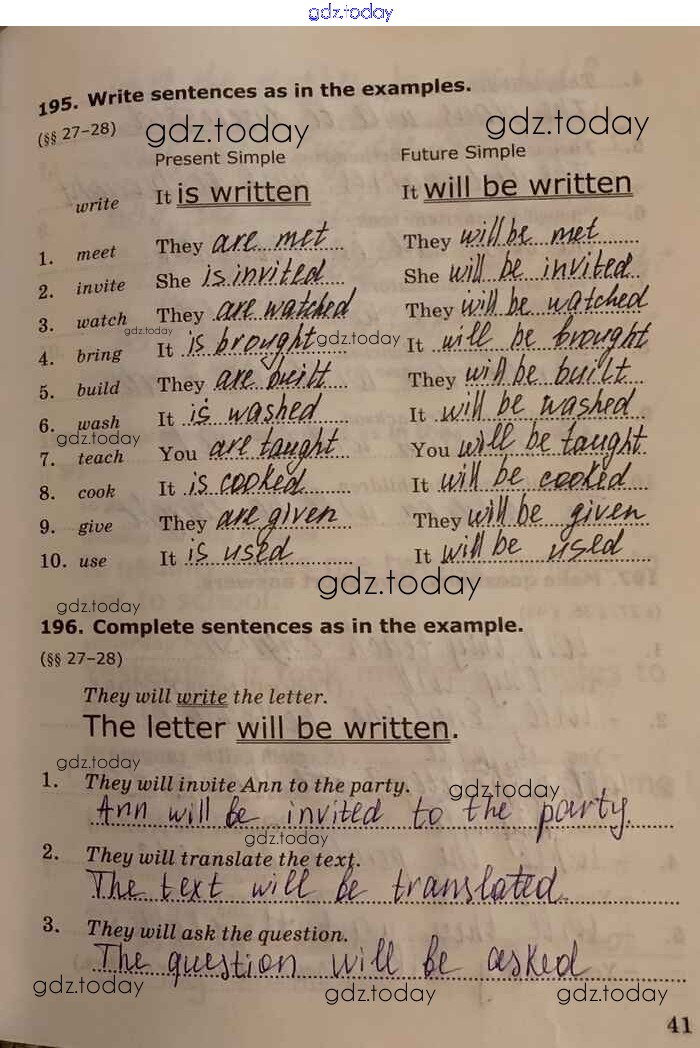 gdz.today
195. Write sentences as in the examples.
(§§ 27–28) gdz.today gdz.today
Present Simple Future Simple
write It is written It will be written
1. meet They are met They will be met
2. invite She is invited She will be invited
3. watch They are watched They will be watched
gdz.today gdz.today
4. bring It is brought It will be brought
5. build They are built They will be built
6. wash It is washed It will be washed
gdz.today
7. teach You are taught You will be taught
8. cook It is cooked It will be cooked
9. give They are given They will be given
10. use It is used It will be used
gdz.today
gdz.today
196. Complete sentences as in the example.
(§§ 27–28)
They will write the letter.
The letter will be written.
gdz.today
1. They will invite Ann to the party.
gdz.today
Ann will be invited to the party.
gdz.today
2. They will translate the text.
The text will be translated.
3. They will ask the question.
The question will be asked
gdz.today gdz.today gdz.today
41